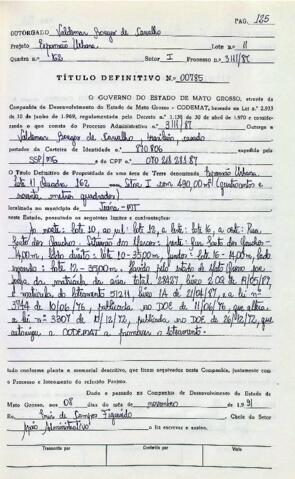 PAG. 125
OUTORGADO Valdemar Borges de Carvalho
Projeto Expansão Urbana Lote n.º 11
Quadra n.º 162 Setor I Processo n.º 3111/87
TÍTULO DEFINITIVO N.º 00785
O GOVERNO DO ESTADO DE MATO GROSSO, através da
Companhia de Desenvolvimento do Estado de Mato Grosso - CODEMAT, baseado na Lei n.º 2.933
de 10 de junho de 1.969, regulamentada pelo Decreto n.º 1.138 de 30 de abril de 1.970 e considerando
o que consta do Processo Administrativo n.º 3111/87 Outorga a
Valdemar Borges de Carvalho, brasileiro, casado
portador da Carteira de Identidade n.º 870806 expedida pela
SSP/MG e do CPF n.º
O Título Definitivo de Propriedade de uma área de Terra denominada Expansão Urbana,
Lote 11 Quadra 162 Setor I com 490,00m² (quatrocentos e
noventa metros quadrados)
localizada no município de Juína-MT
neste Estado, possuindo os seguintes limites e confrontações:
Ao norte: lote 10, ao sul: lote 12, a leste: lote 16, a oeste: Rua
14,00m, lado direito: lote 10-35,00m, fundos: lote 16-14,00m, lado
esquerdo: lote 12-35,00m.
e matrícula do loteamento 51211, livro 2A de 21/04/87, e a lei n.º
de 10/06/76, publicada no DOE de 11/06/76, que altera
a lei n.º 3307 de 18/12/72, publicada no DOE de 26/12/72, que
autoriza a CODEMAT a promover o loteamento.
tudo conforme planta e memorial descritivo, que ficam arquivados nesta Companhia, juntamente com
o Processo e Integrante do referido Projeto.
Dado e passado na Companhia de Desenvolvimento do Estado de
Mato Grosso, aos 08 dias do mês de novembro de 1.991
Eu, Inês de Campos Figueiredo Chefe do Setor
Apoio Administrativo o fiz escrever e assino.
Transcrito por Conferido por Visto